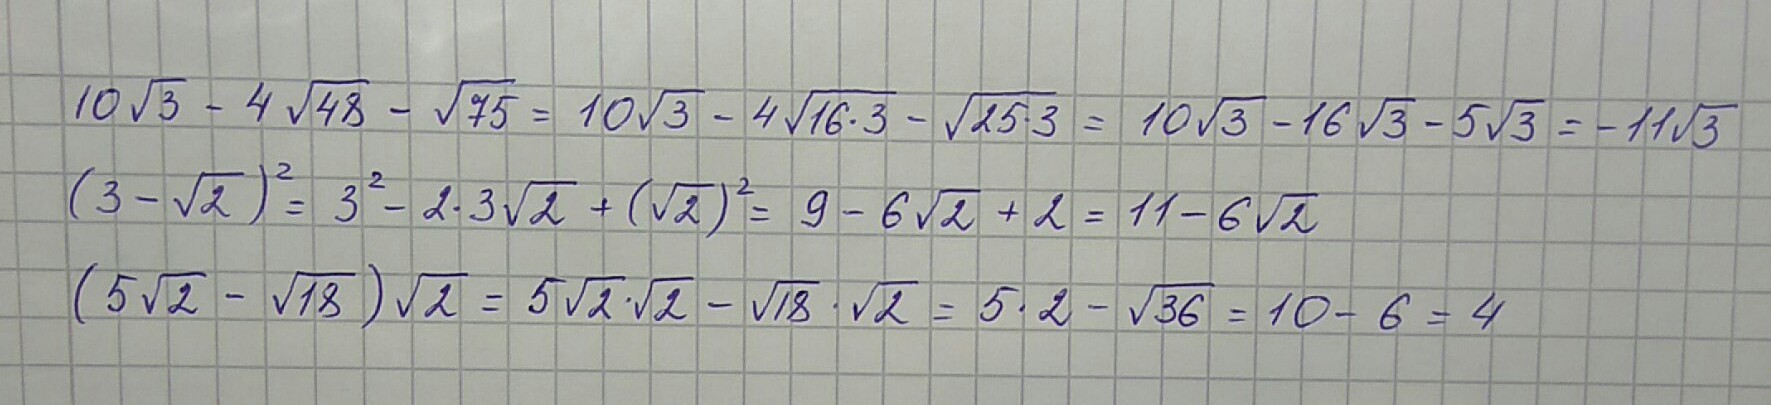 10√3 - 4√48 - √75 = 10√3 - 4√16·3 - √25·3 = 10√3 - 16√3 - 5√3 = -11√3
(3 - √2)² = 3² - 2·3√2 + (√2)² = 9 - 6√2 + 2 = 11 - 6√2
(5√2 - √18)√2 = 5√2·√2 - √18·√2 = 5·2 - √36 = 10 - 6 = 4